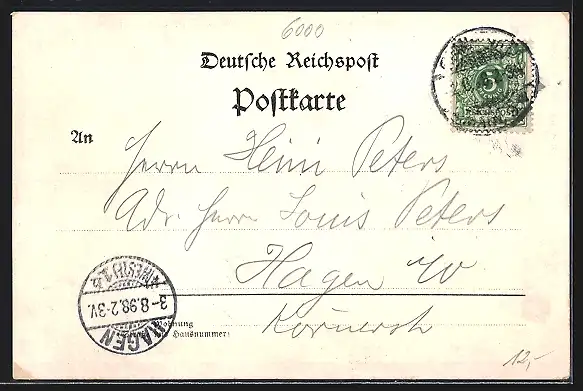 6000
Deutsche Reichspost
Postkarte
5
An
Herrn Heini Peters
Adr. Herrn Louis Peters
Hagen i/W
Körnerstr
Wohnung
Hausnummer)
HAGEN (WESTF.) 1
3-8.98.2-3V.
12,-